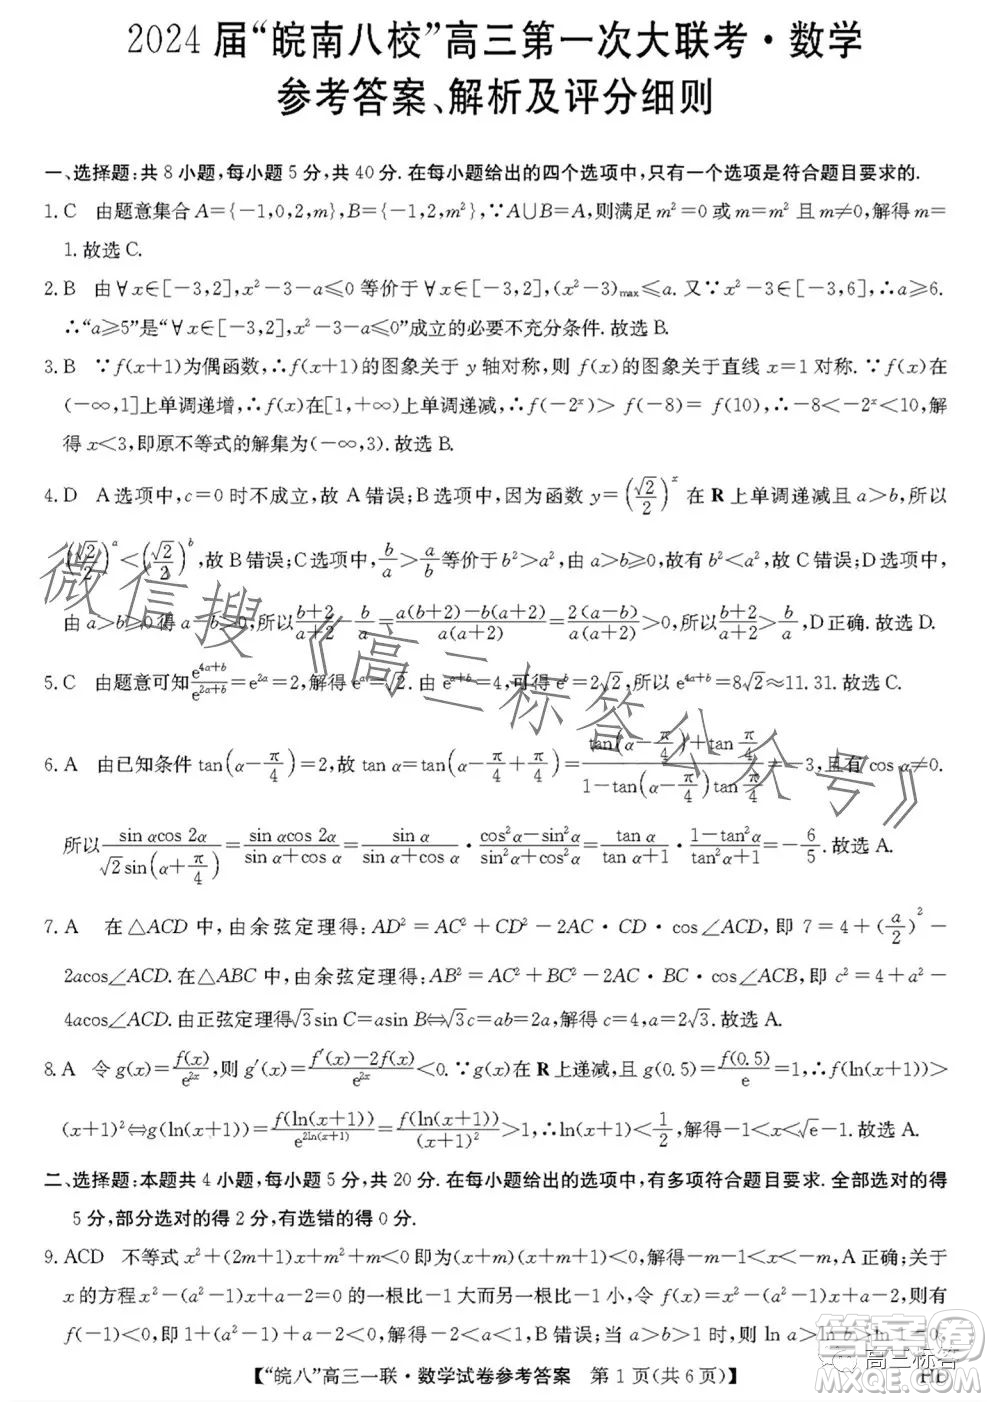 2024 届“皖南八校”高三第一次大联考·数学
参考答案、解析及评分细则
一、选择题:共 8 小题,每小题 5 分,共 40 分. 在每小题给出的四个选项中,只有一个选项是符合题目要求的.
1. C 由题意集合 A={-1,0,2,m},B={-1,2,m²},∵A∪B=A,则满足 m²=0 或 m=m² 且 m≠0,解得 m=
1. 故选 C.
2. B 由∀x∈[-3,2],x²-3-a≤0 等价于∀x∈[-3,2],(x²-3)max≤a. 又∵x²-3∈[-3,6],∴a≥6.
∴“a≥5”是“∀x∈[-3,2],x²-3-a≤0”成立的必要不充分条件. 故选 B.
3. B ∵f(x+1)为偶函数,∴f(x+1)的图象关于 y 轴对称,则 f(x)的图象关于直线 x=1 对称. ∵f(x)在
(-∞,1]上单调递增,∴f(x)在[1,+∞)上单调递减,∴f(-2ˣ)> f(-8)= f(10),∴-8<-2ˣ<10,解
得 x<3,即原不等式的解集为(-∞,3). 故选 B.
4. D A 选项中,c=0 时不成立,故 A 错误;B 选项中,因为函数 y=(√2/2)ˣ 在 R 上单调递减且 a>b,所以
(√2/2)ᵃ<(√2/2)ᵇ,故 B 错误;C 选项中,b/a>a/b等价于 b²>a²,因为 a>b≥0,故有 b²<a²,故 C 错误;D 选项中,
由 a>b≥0 得 a>b≥0,所以(b+2)/(a+2)-b/a=(a(b+2)-b(a+2))/(a(a+2))=2(a-b)/(a(a+2))>0,所以(b+2)/(a+2)>b/a,D 正确. 故选 D.
5. C 由题意可知e^(4a+b)/e^(2a+b)=e^(2a)=2,解得 eᵃ=√2. 由 e^(a+b)=4,可得 eᵇ=2√2,所以 e^(4a+b)=8√2≈11.31. 故选 C.
6. A 由已知条件 tan(α-π/4)=2,故 tan α=tan(α-π/4+π/4)=(tan(α-π/4)+tan π/4)/(1-tan(α-π/4)tan π/4)=-3,且有 cos α≠0.
所以(sin αcos 2α)/(√2sin(α+π/4))=(sin αcos 2α)/(sin α+cos α)=sin α/(sin α+cos α)·(cos²α-sin²α)/(sin²α+cos²α)=tan α/(tan α+1)·(1-tan²α)/(tan²α+1)=-6/5. 故选 A.
7. A 在△ACD 中,由余弦定理得:AD²=AC²+CD²-2AC·CD·cos∠ACD,即 7=4+(a/2)²-
2acos∠ACD. 在△ABC 中,由余弦定理得:AB²=AC²+BC²-2AC·BC·cos∠ACB,即 c²=4+a²-
4acos∠ACD. 由正弦定理得√3sin C=asin B⇔√3c=ab=2a,解得 c=4,a=2√3. 故选 A.
8. A 令 g(x)=f(x)/e^(2x),则 g′(x)=(f′(x)-2f(x))/e^(2x)<0. ∵g(x)在 R 上递减,且 g(0.5)=f(0.5)/e=1,∴f(ln(x+1))>
(x+1)²⇔g(ln(x+1))=f(ln(x+1))/e^(2ln(x+1))=f(ln(x+1))/(x+1)²>1,∴ln(x+1)<1/2,解得-1<x<√e-1. 故选 A.
二、选择题:本题共 4 小题,每小题 5 分,共 20 分. 在每小题给出的选项中,有多项符合题目要求. 全部选对的得
5 分,部分选对的得 2 分,有选错的得 0 分.
9. ACD 不等式 x²+(2m+1)x+m²+m<0 即为(x+m)(x+m+1)<0,解得-m-1<x<-m,A 正确;关于
x 的方程 x²-(a²-1)x+a-2=0 的一根比-1 大而另一根比-1 小,令 f(x)=x²-(a²-1)x+a-2,则有
f(-1)<0,即 1+(a²-1)+a-2<0,解得-2<a<1,B 错误;∵a>b>1,则 ln a>ln b>ln 1=0,
“皖八”高三一联·数学试卷参考答案 第 1 页(共 6 页)
HD
微信搜《高三标答公众号》
高三标答
答案圈